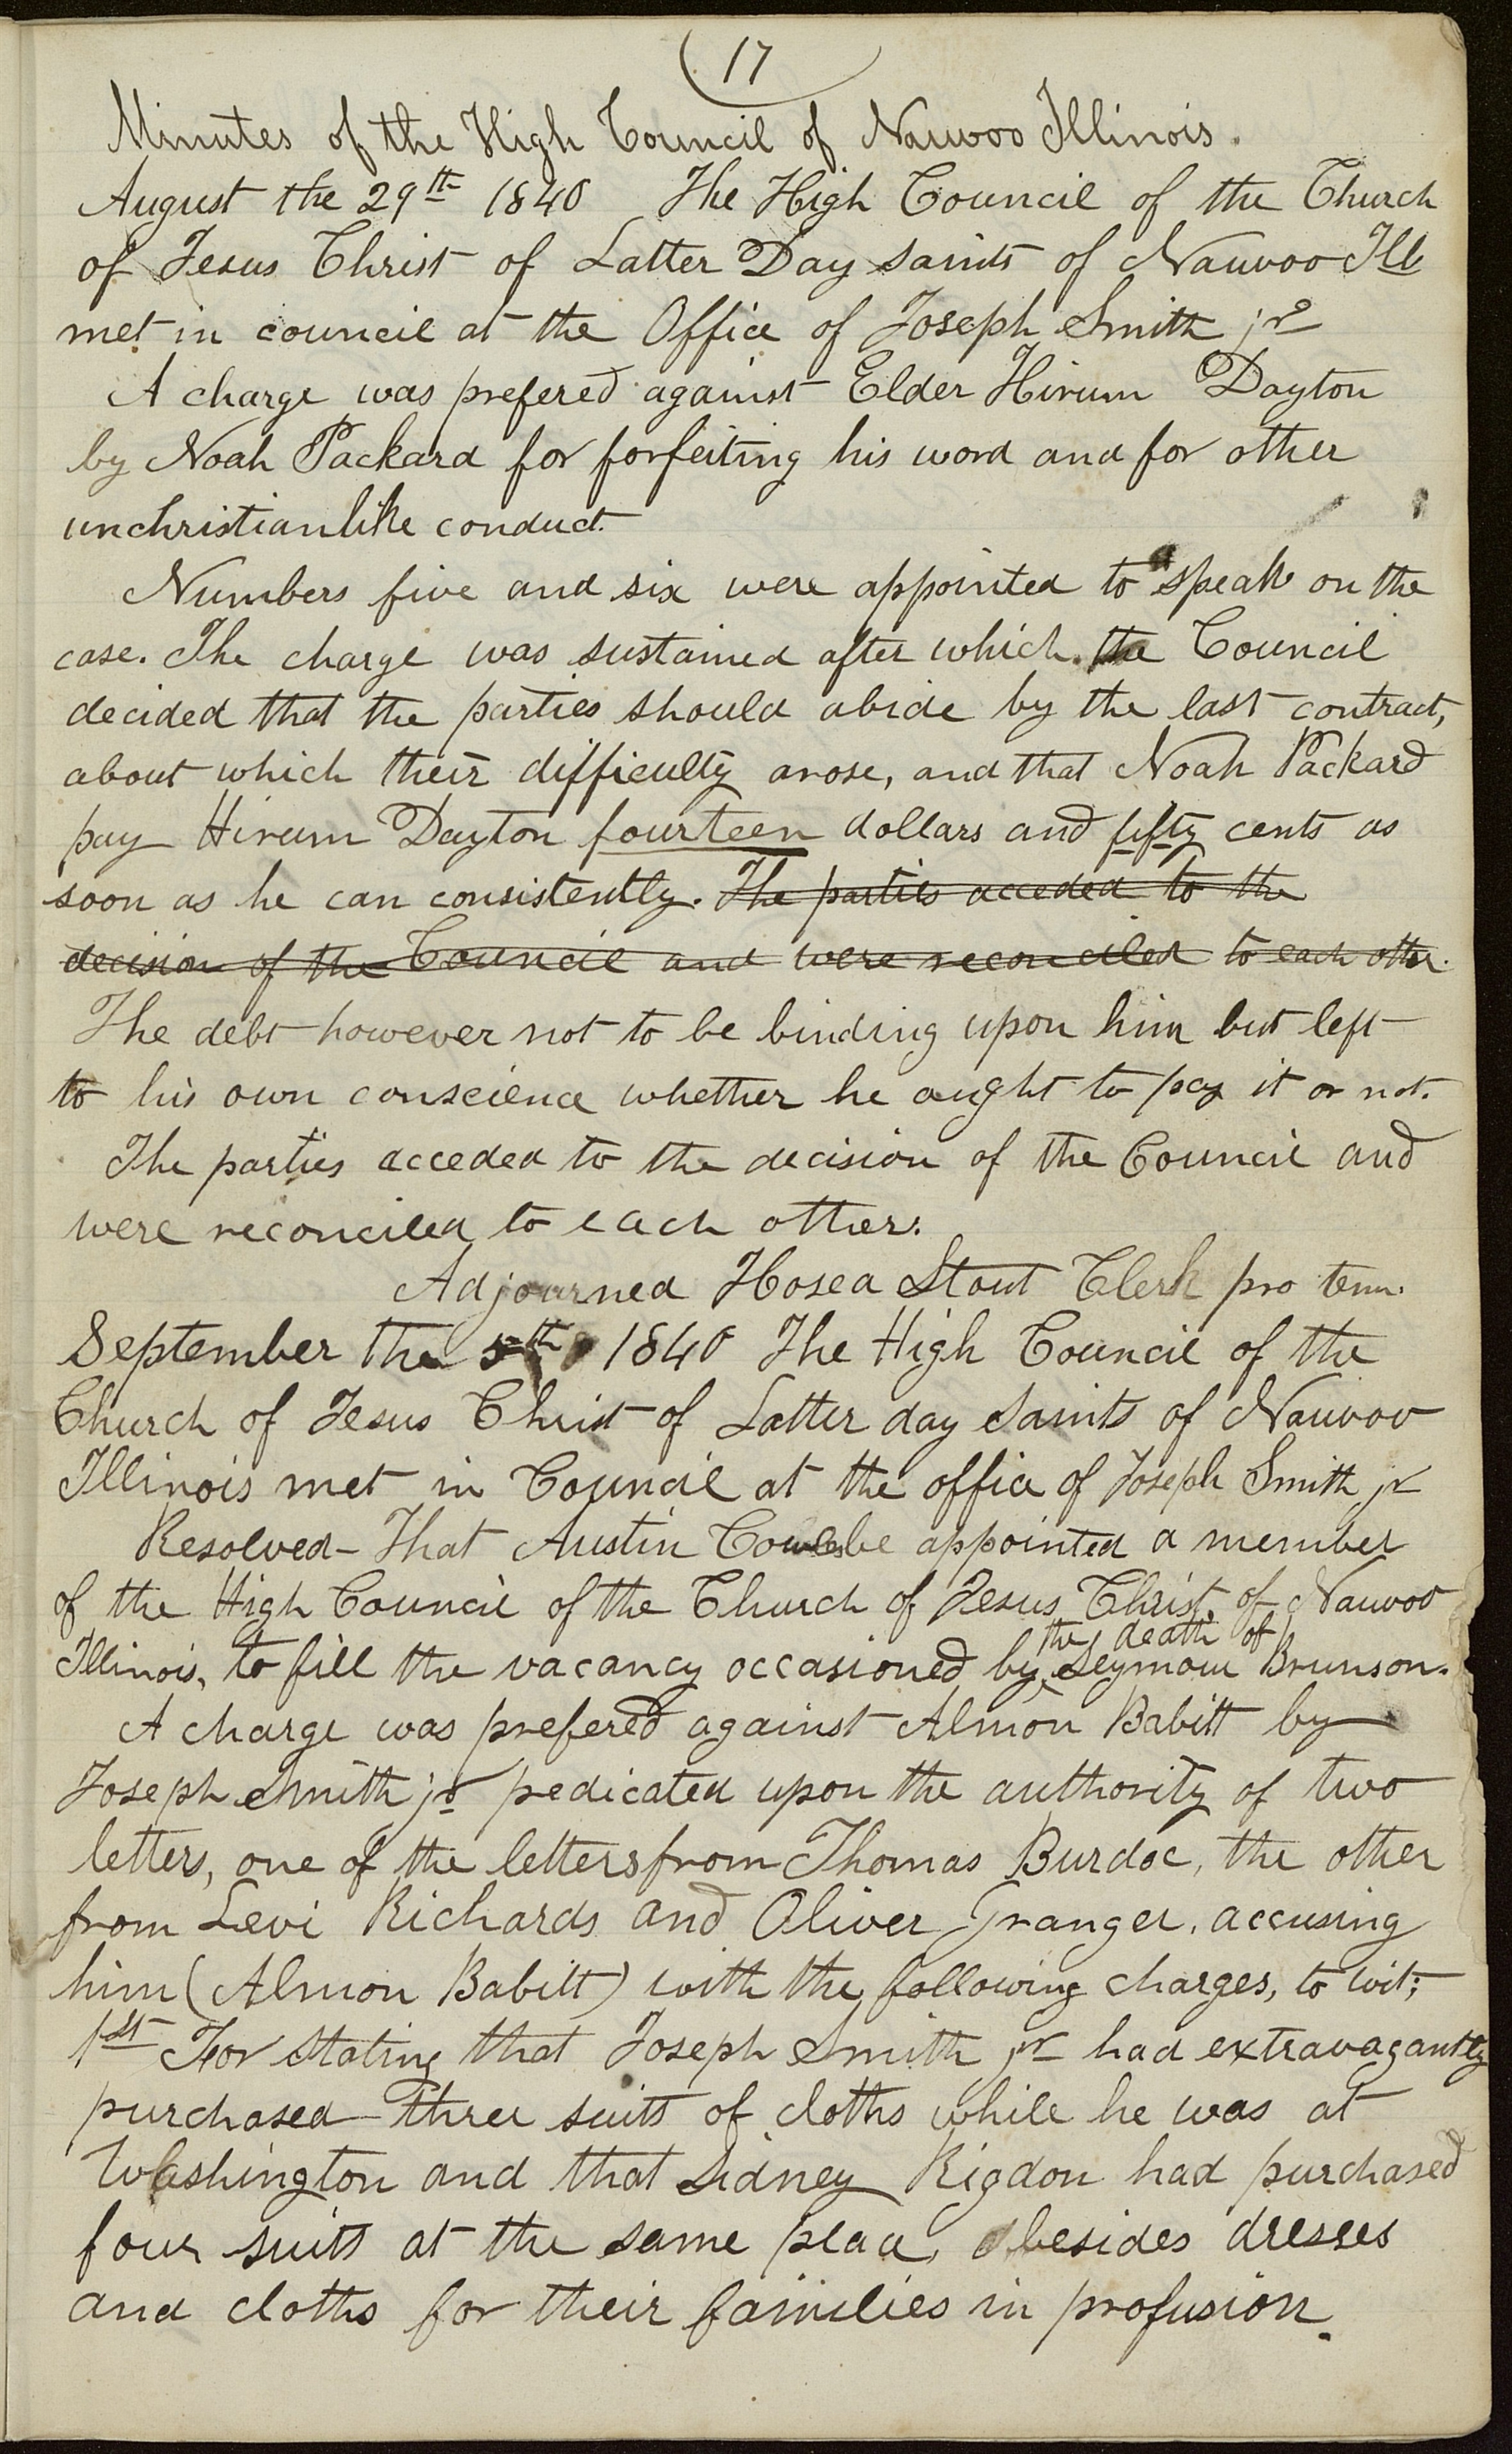 17
Minutes of the High Council of Nauvoo Illinois.
August the 29th 1840 The High Council of the Church
of Jesus Christ of Latter Day saints of Nauvoo Ill
met in council at the Office of Joseph Smith jr
A charge was prefered against Elder Hirum Dayton
by Noah Packard for forfeiting his word and for other
unchristianlike conduct.
Numbers five and six were appointed to speak on the
case. The charge was sustained after which the Council
decided that the parties should abide by the last contract,
about which their difficulty arose, and that Noah Packard
pay Hirum Dayton fourteen dollars and fifty cents as
soon as he can consistently. The parties acceded to the
decision of the Council and were reconciled to each other.
The debt however not to be binding upon him but left
to his own conscience whether he aught to pay it or not.
The parties acceded to the decision of the Council and
were reconciled to each other.
Adjourned Hosea Stout Clerk pro tem.
September the 5th 1840 The High Council of the
Church of Jesus Christ of Latter day Saints of Nauvoo
Illinois met in Council at the office of Joseph Smith jr
Resolved- That Austin Cowles be appointed a member
of the High Council of the Church of Jesus Christ, of Nauvoo
Illinois, to fill the vacancy occasioned by the death of Seymour Brunson.
A charge was prefered against Almon Babitt by
Joseph Smith jr predicated upon the authority of two
letters, one of the letters from Thomas Burdoc, the other
from Levi Richards and Oliver Granger, accusing
him (Almon Babitt) with the following charges, to wit;
1st For stating that Joseph Smith jr had extravagantly
purchased three suits of cloths while he was at
Washington and that Sidney Rigdon had purchased
four suits at the same place, besides dresses
and cloths for their families in profusion.